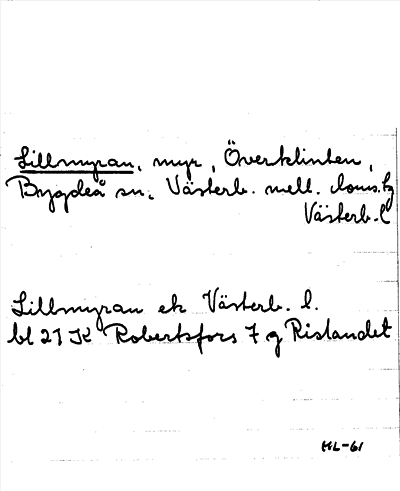 Lillmyran, myr, Överklinten,
Bygdeå sn, Västerb. mell. doms.tg
Västerb. l
Lillmyran ek Västerb. l.
bl 21 K Robertsfors 7 g Rislandet
HL-61